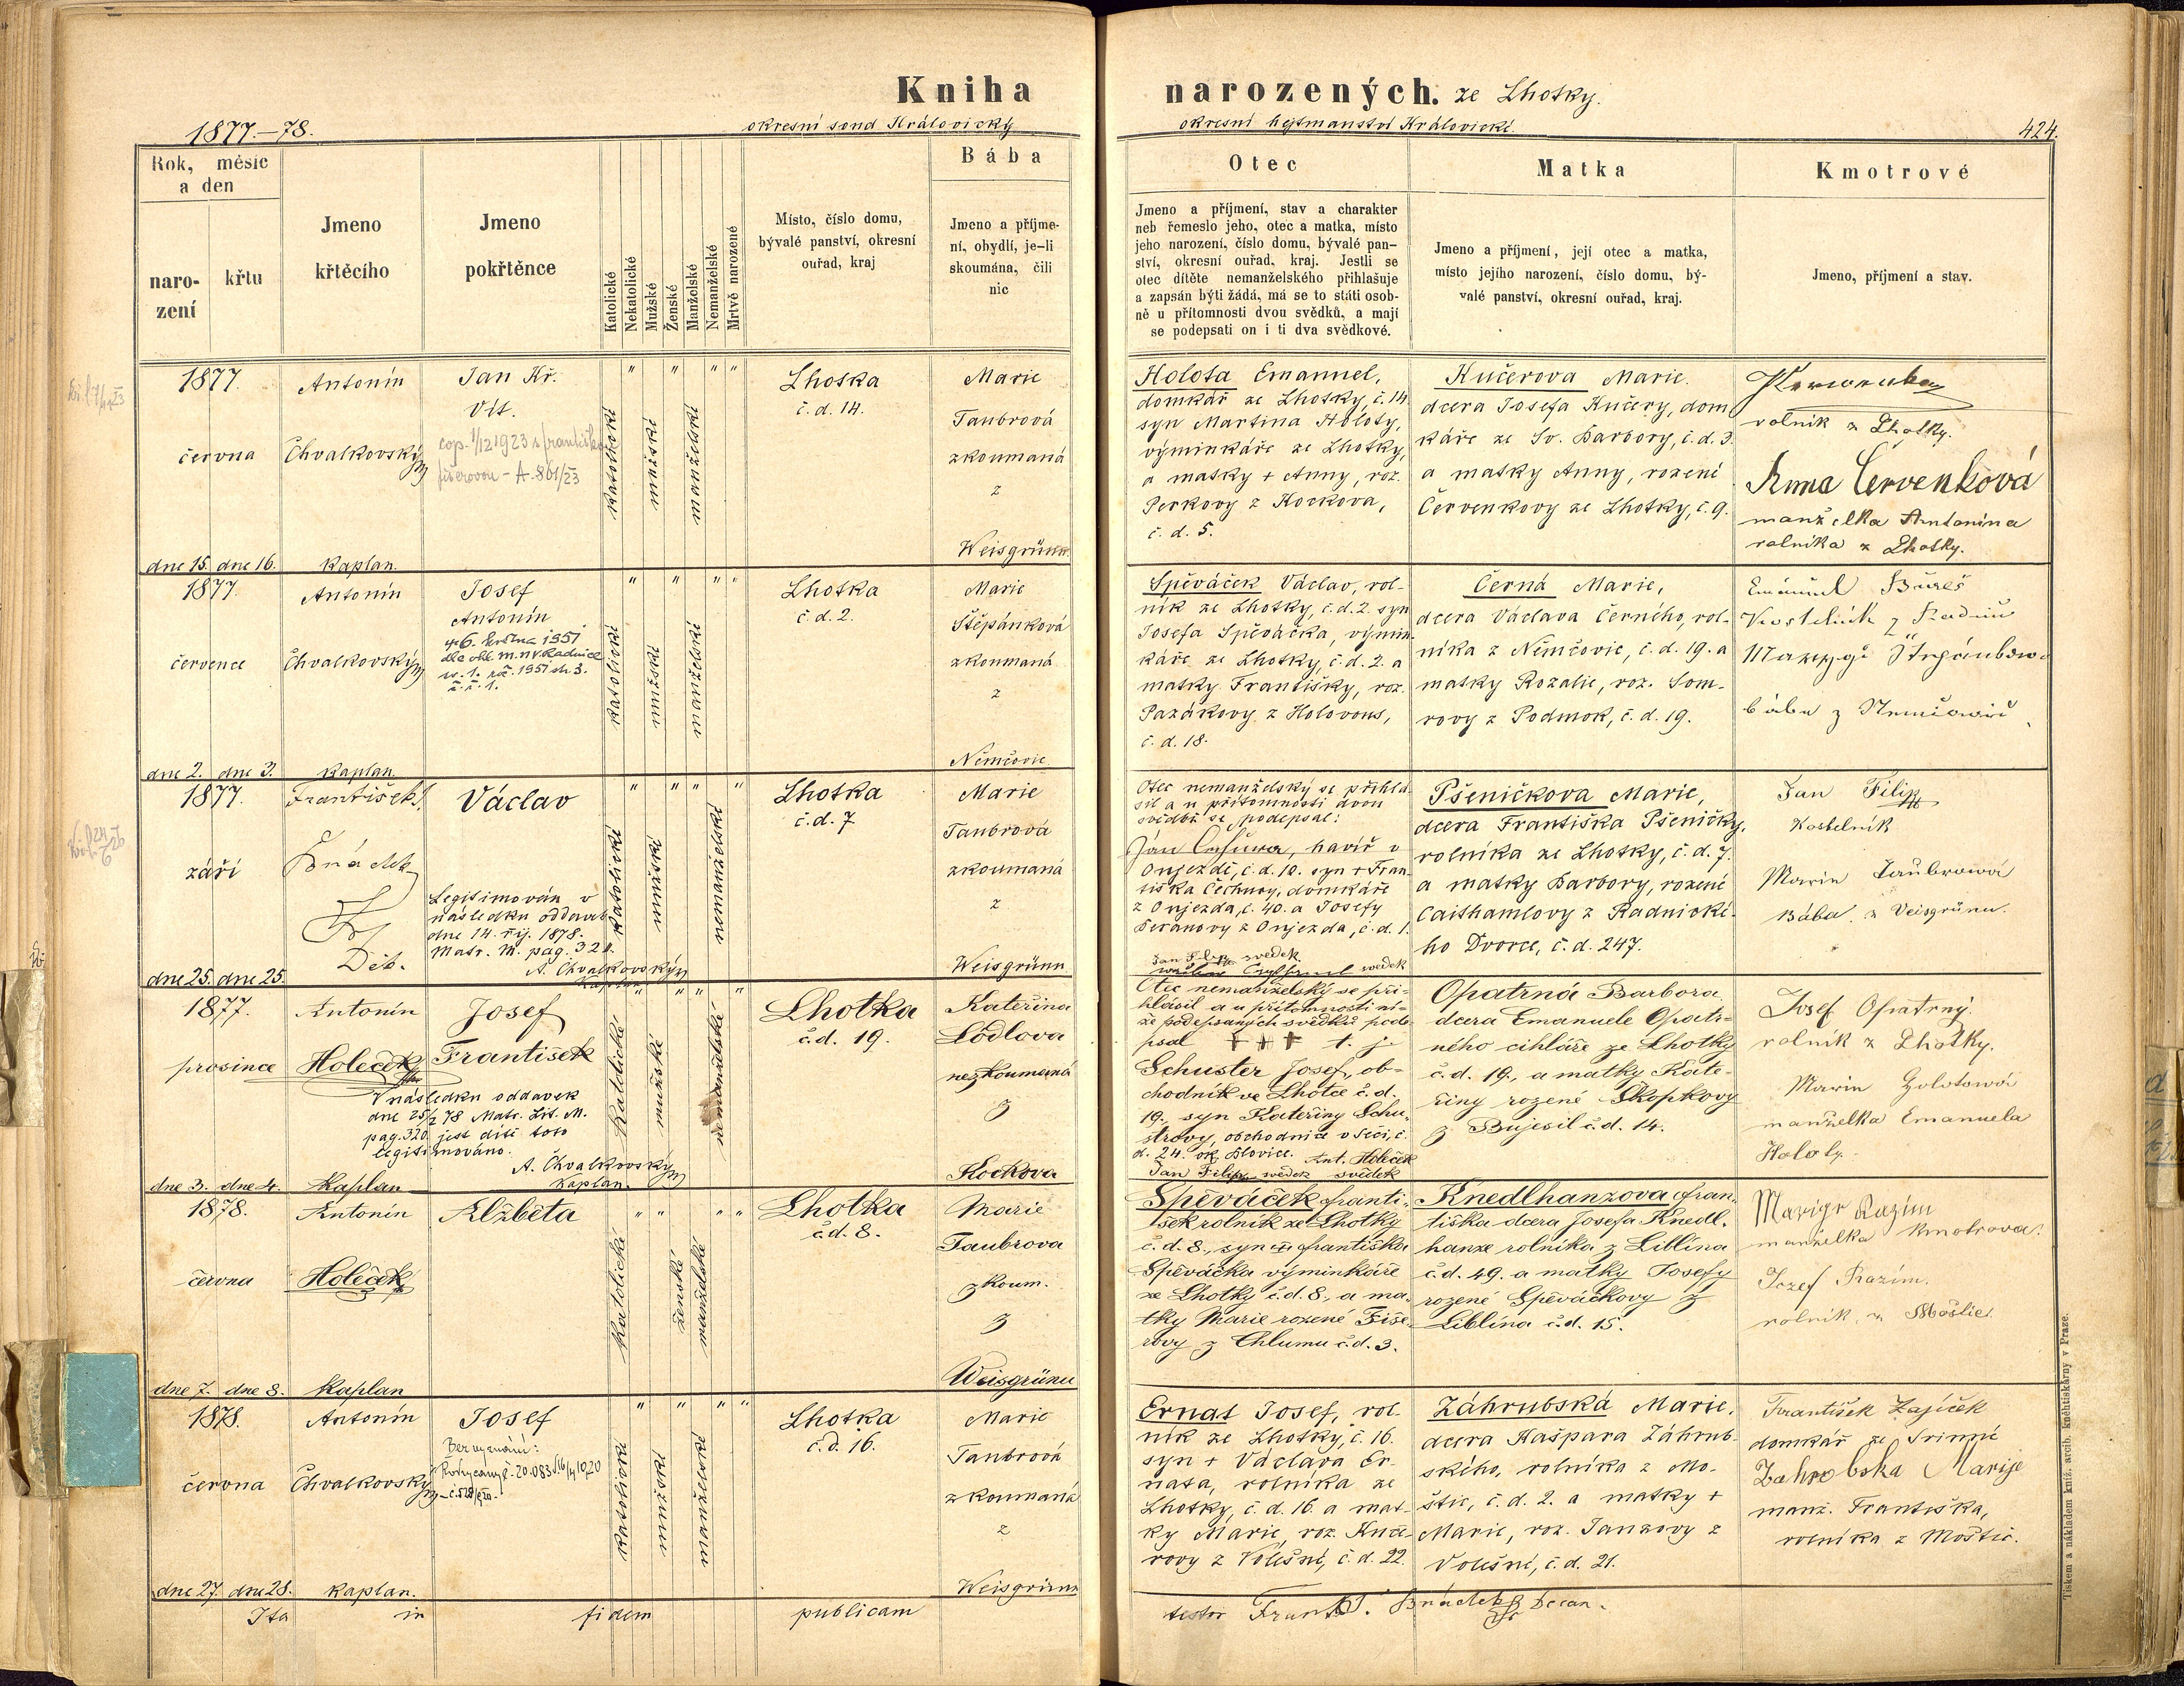 Kniha narozených. ze Lhotky.
1877.–78.
okresní soud Královický
okresní hejtmanství Královické.
424.
Rok, měsíc
a den
naro-
zení
křtu
Jmeno
křtěcího
Jmeno
pokřtěnce
Katolické
Nekatolické
Mužské
Ženské
Manželské
Nemanželské
Mrtvě narozené
Místo, číslo domu,
bývalé panství, okresní
ouřad, kraj
Bába
Jmeno a příjme-
ní, obydlí, je-li
skoumána, čili
nic
Otec
Jmeno a příjmení, stav a charakter
neb řemeslo jeho, otec a matka, místo
jeho narození, číslo domu, bývalé pan-
ství, okresní ouřad, kraj. Jestli se
otec dítěte nemanželského přihlašuje
a zapsán býti žádá, má se to státi osob-
ně u přítomnosti dvou svědků, a mají
se podepsati on i ti dva svědkové.
Matka
Jmeno a příjmení, její otec a matka,
místo jejího narození, číslo domu, bý-
valé panství, okresní ouřad, kraj.
Kmotrové
Jmeno, příjmení a stav.
1877.
června
dne 15. dne 16.
Antonín
Chvalkovský
kaplan.
Jan Kř.
Vít.
cop. 1/12 1923 s Františkou
Fišerovou – A-801/23
katolické
mužské
manželské
Lhotka
č. d. 14.
Marie
Taubrová
zkoumaná
z
Weisgrünn
Holota Emanuel,
domkář ze Lhotky, č. 14.
syn Martina Holoty,
výminkáře ze Lhotky,
a matky + Anny, roz.
Perkovy z Kockova,
č. d. 5.
Kučerova Marie.
dcera Josefa Kučery, dom
káře ze Sv. Barbory, č. d. 3.
a matky Anny, rozené
Červenkovy ze Lhotky, č. 9.
rolník z Lhotky.
Anna Červenková
manželka Antonína
rolníka z Lhotky.
1877.
července
dne 2. dne 3.
Antonín
Chvalkovský
kaplan.
Josef
Antonín
6. června 1951
dle ohl. m. n. v. Radnice
1951 str. 3.
č. ř. 1.
katolické
mužské
manželské
Lhotka
č. d. 2.
Marie
Štěpánková
zkoumaná
z
Němčovic
Spěváček Václav, rol-
ník ze Lhotky, č. d. 2. syn
Josefa Spěváčka, výmin-
káře ze Lhotky, č. d. 2. a
matky Františky, roz.
Pazákovy z Holovous,
č. d. 18.
Černá Marie,
dcera Václava Černého, rol-
níka z Němčovic, č. d. 19. a
matky Rozalie, roz. Som-
rovy z Podmok, č. d. 19.
Emánuel Bureš
Kostelník z Radnic
bába z Nemčowic
1877.
září
dne 25. dne 25.
František
Hnádek
Děk.
Václav
Legitimován v
následku oddavek
dne 14. říj. 1878.
Matr. M. pag. 321.
A. Chvalkovský
kaplan
katolické
mužské
nemanželské
Lhotka
č. d. 7
Marie
Taubrová
zkoumaná
z
Weisgrünn
Otec nemanželský se přihlá
sil a u přítomnosti dvou
svědků se podepsal:
Jan Čechura, havíř v
Onjezdě, č. d. 10. syn + Fran
tiška Čechury, domkáře
z Onjezda, č. 40. a Josefy
Beranovy z Onjezda, č. d. 1.
Jan Filip svedek
svedek
Pšeničkova Marie,
dcera Františka Pšeničky,
rolníka ze Lhotky, č. d. 7.
a matky Barbory, rozené
Caithamlovy z Radnické-
ho Dvorce, č. d. 247.
Jan Filip
Kostelník
Marie Taubrowá
Bába z Veisgrünu.
1877.
prosince
dne 3. dne 4.
Antonín
Holeček
Kaplan
Josef
František
V následku oddavek
dne 25/2 78 Matr. Lit. M.
pag. 320 jest dítě toto
legitimováno.
A. Chvalkovský
kaplan.
Katolické
mužské
nemanželské
Lhotka
č. d. 19.
Kateřina
Lódlova
nezkoumaná
z
Kockova
Otec nemanželský se při-
hlásil a u přítomnosti ní-
že podepsaných svědků pode-
psal + + + t. j.
Schuster Josef, ob-
chodník ve Lhotce č. d.
19. syn Kateřiny Schu-
strovy, obchodnice v Seči, č.
d. 24. ok. Blovice. Ant. Holeček
Jan Filip svedek svědek
Opatrná Barbora
dcera Emanuele Opatr-
ného cihláře ze Lhotky
č. d. 19., a matky Kate-
řiny rozené Skopkovy
z Bujesil č. d. 14.
Josef Opatrný
rolník z Lhotky.
Marie Holotowá
manželka Emanuela
Holoty.
1878.
června
dne 7. dne 8.
Antonín
Holeček
Kaplan
Alžběta
Katolické
ženské
manželské
Lhotka
č. d. 8.
Marie
Taubrova
zkoum.
z
Weisgrünu
Spěváček Franti-
šek rolník ze Lhotky
č. d. 8., syn + Františka
Spěváčka výminkáře
ze Lhotky č. d. 8., a ma-
tky Marie rozené Fiše-
rovy z Chlumu č. d. 3.
Knedlhanzova Fran-
tiška dcera Josefa Knedl-
hanze rolníka z Liblína
č. d. 49. a matky Josefy
rozené Spěváčkovy z
Liblína č. d. 15.
Marige Razím
manželka Kmotrova.
Jozef Razím.
rolník z Moštic.
1878.
června
dne 27. dne 28.
Antonín
Chvalkovský
kaplan.
Josef
Bez vyznání:
katolické
mužské
manželské
Lhotka
č. d. 16.
Marie
Taubrová
zkoumaná
z
Weisgrünn
Ernat Josef, rol-
ník ze Lhotky, č. 16.
syn + Václava Er-
nata, rolníka ze
Lhotky, č. d. 16. a mat-
ky Marie, roz. Kuče-
rovy z Volešné, č. d. 22.
Záhrubská Marie.
dcera Kašpara Záhrub-
ského, rolníka z Mo-
štic, č. d. 2. a matky +
Marie, roz. Janzovy z
Volešné, č. d. 21.
František Zajíček
domkář ze Svinné
Zahrobska Marije
manž. Františka,
rolníka z Moštic.
Ita in fidem publicam
testor Frant. Hnádek Decan.
Tiskem a nákladem kníž. arcib. knihtiskárny v Praze.